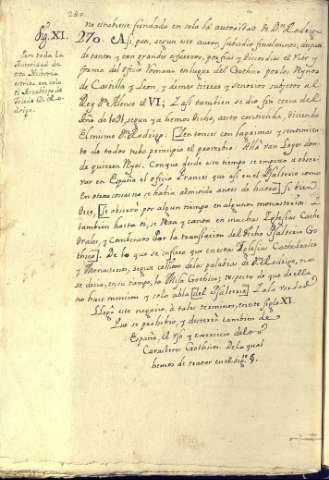 280.
no estubiese fundada en sola la autoridad de Dn. Rodrigo.
Sig. XI.
Son todo la
Autoridad de
esta Historia
escrita en solo
el Arzobispo de
Toledo Dn. Ro-
drigo.
270. Asi, pues, segun este autor,
de tanto y con grandes esfuerzos, por fin, y
forma del oficio Romano enlugar del Gothico por los Reynos
de Castilla y Leon, y demas tierras y senorios sujetos al
Rey Dn. Alonso el VI; i asi tambien se dio fin cerca del
Año de 1091, segun ya hemos dicho, a esta contienda, diciendo
el mismo Dn. Rodrigo. Y entonces con lagrimas y sentimien-
to de todos tubo principio el proverbio: Allá van Leyes don-
de quieren Reyes. Conque desde este tiempo se empezó a obser-
var en España el oficio Frances que asi en el Psalterio como
en otras cosas no se habia admitido antes de haora; Si bien
dice, Se observó por algun tiempo en algunos monasterios. I
tambien hasta oi, se reza y canta en muchas Iglesias Cathe-
drales, y Conventos por la translacion del dicho Psalterio Go-
thico. De lo que se infiere que en estas Iglesias Cathedrales
y Monasterios, segun consta de las palabras de Dn. Rodrigo, no
se decia, en su tiempo, la Missa Gothica; respecto de que de ella
no hace mencion y solo habla del Psalterio. I a la verdad
Llegó este negocio á tales terminos, en este siglo XI.
Que se prohibió, y desterró tambien de
España, el uso y exercicio de los
Caracteres Gothicos. De lo qual
hemos de tratar en el sigte. §.